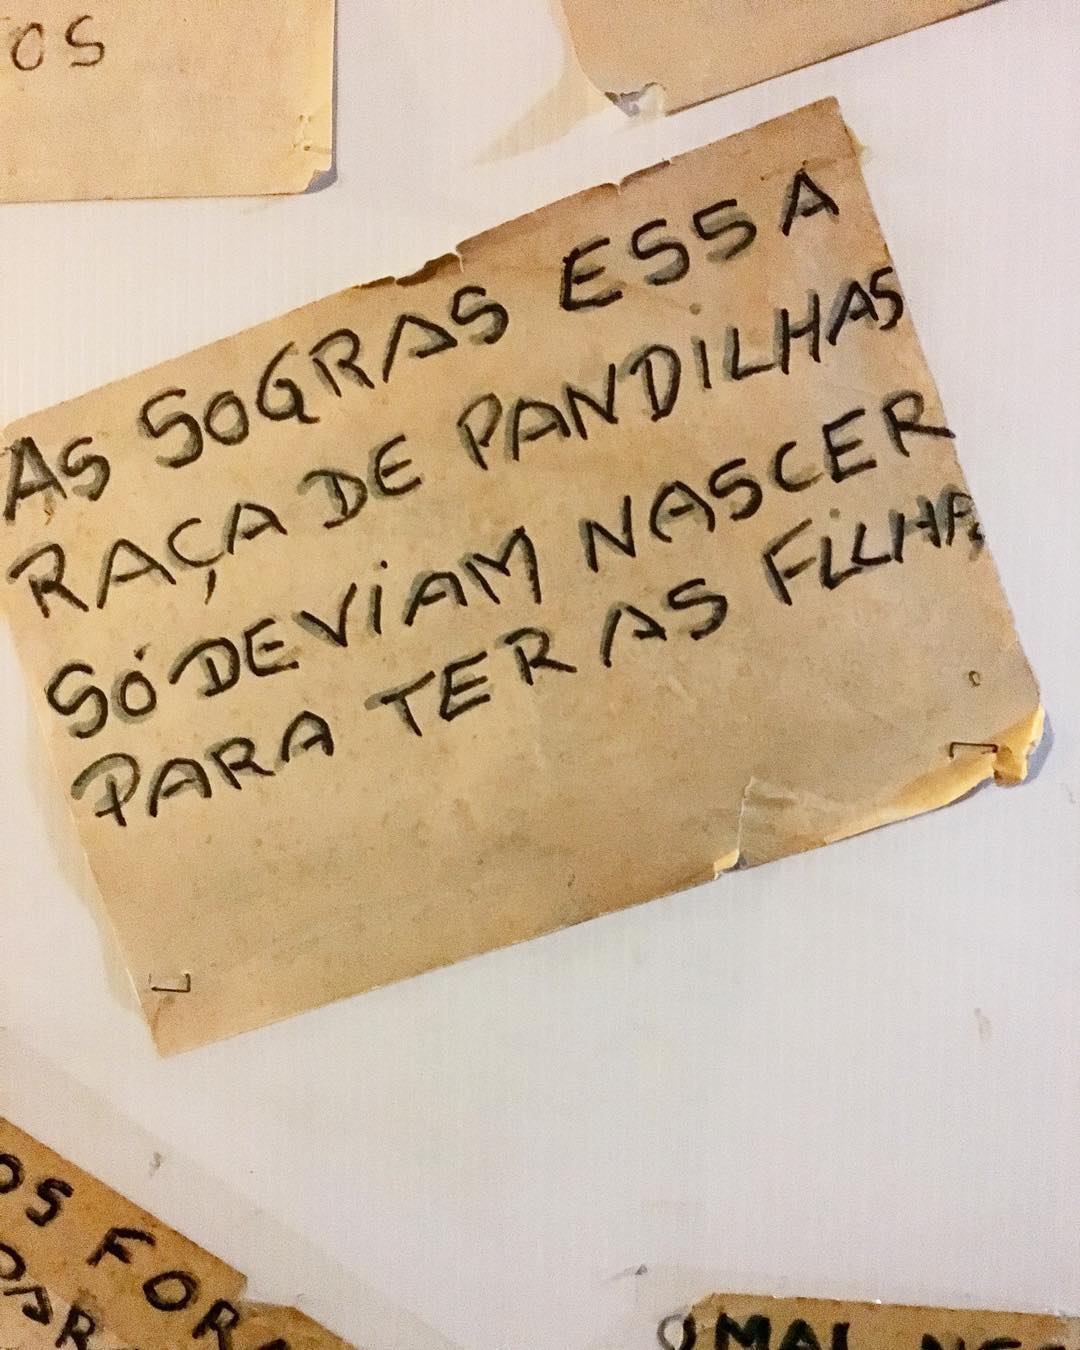 OS
AS SOGRAS ESSA
RAÇA DE PANDILHAS
SÓ DEVIAM NASCER
PARA TER AS FILHAS
OS
O MAL